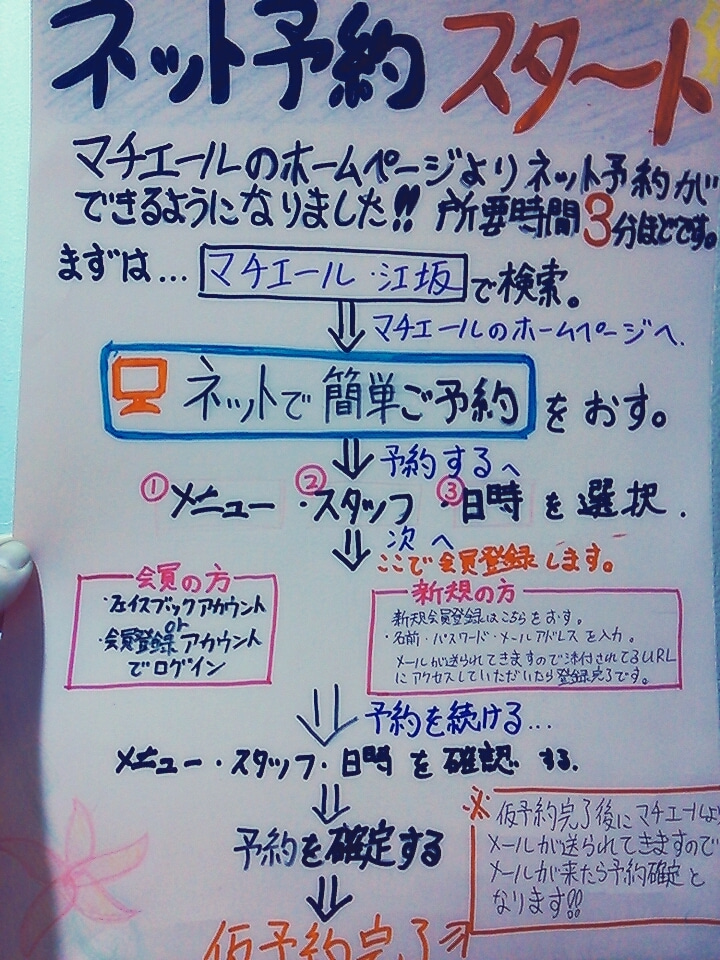 ネット予約 スタート
マチエールのホームページよりネット予約が
できるようになりました!! 所要時間3分ほどです。
まずは... マチエール・江坂 で検索。
マチエールのホームページへ.
ネットで簡単ご予約 をおす。
予約するへ
①メニュー ②・スタッフ ③・日時 を選択.
次へ
ここで会員登録します。
会員の方
・フェイスブックアカウント
or
・会員登録アカウント
でログイン
新規の方
新規会員登録はこちらをおす。
・名前・パスワード・メールアドレスを入力。
メールが送られてきますので添付されてるURL
にアクセスしていただいたら登録完了です。
予約を続ける...
メニュー・スタッフ・日時を確認する.
予約を確定する
仮予約完了
※仮予約完了後にマチエールよ
メールが送られてきますので
メールが来たら予約確定と
なります!!